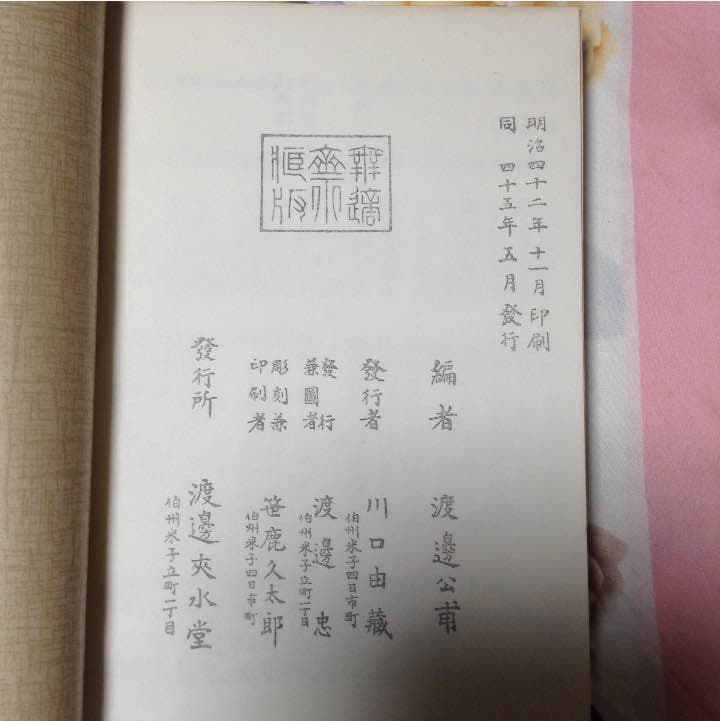 明治四十二年十一月印刷
同 四十五年五月發行
編者 渡邊公甫
發行者 川口由藏
伯州米子四日市町
發行
兼圖者 渡邊忠
伯州米子立町一丁目
彫刻兼
印刷者 笹鹿久太郎
伯州米子四日市町
發行所 渡邊夾水堂
伯州米子立町一丁目